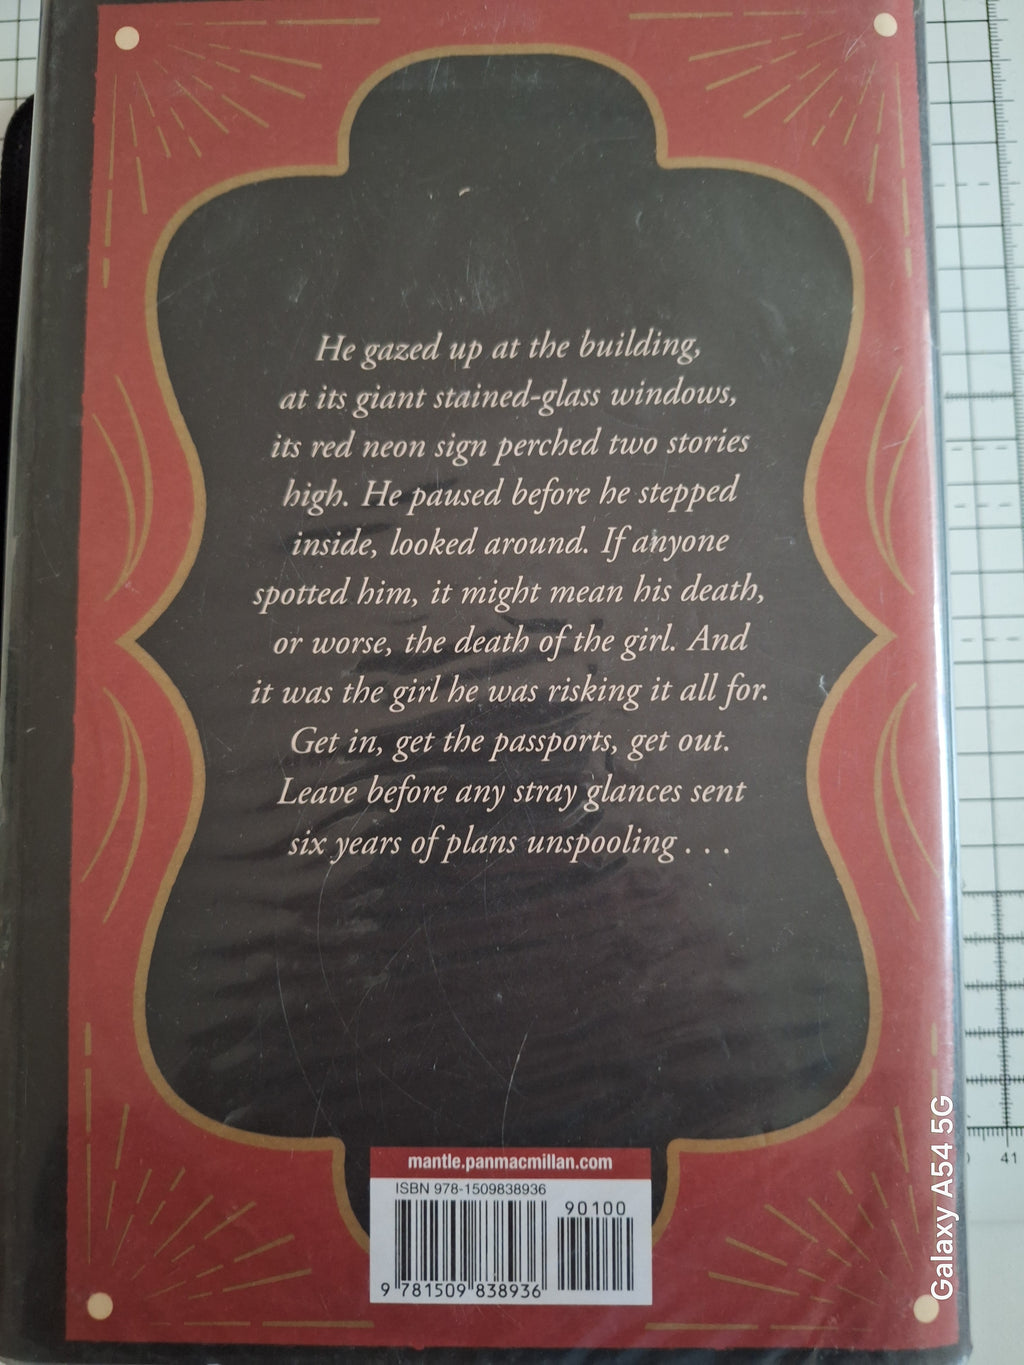 He gazed up at the building,
at its giant stained-glass windows,
its red neon sign perched two stories
high. He paused before he stepped
inside, looked around. If anyone
spotted him, it might mean his death,
or worse, the death of the girl. And
it was the girl he was risking it all for.
Get in, get the passports, get out.
Leave before any stray glances sent
six years of plans unspooling . . .
mantle.panmacmillan.com
ISBN 978-1509838936
90100
9 781509 838936
41
Galaxy A54 5G